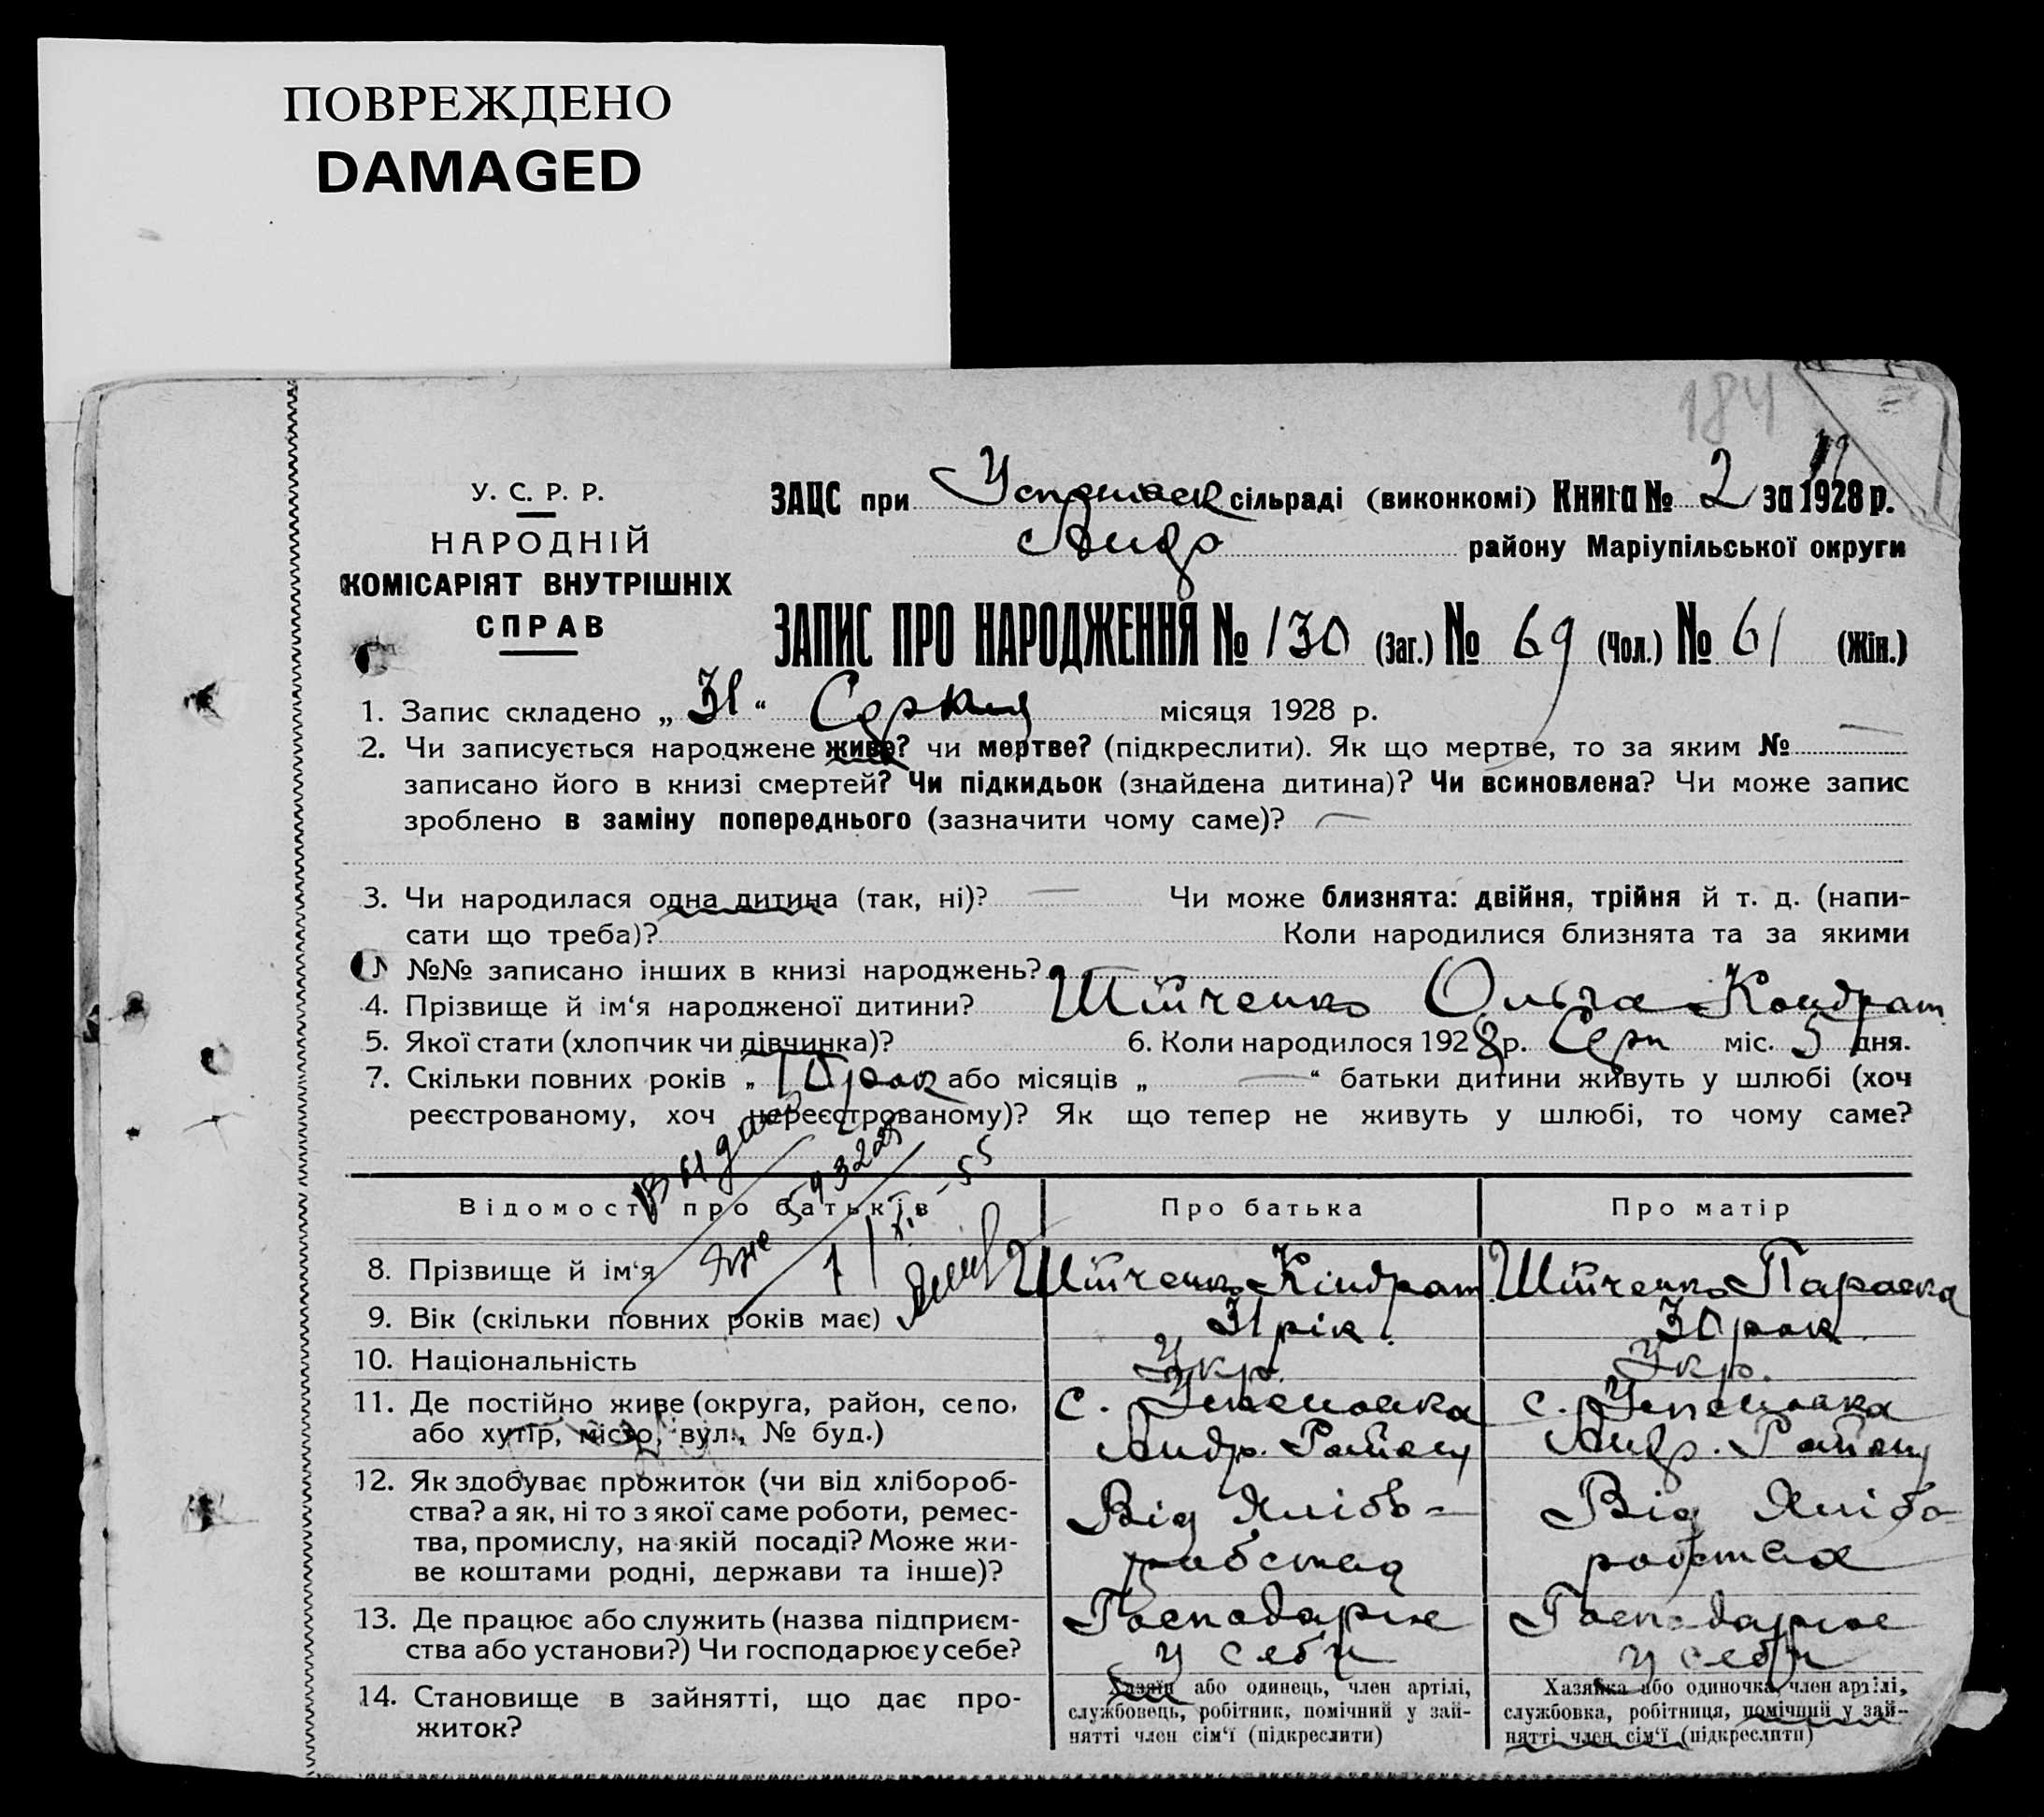 ПОВРЕЖДЕНО
DAMAGED
184
У. С. Р. Р.
НАРОДНІЙ
КОМІСАРІЯТ ВНУТРІШНІХ
СПРАВ
ЗАЦС при Успенськ сільраді (виконкомі) Книга № 2 за 1928 р.
Андр району Маріупільської округи
ЗАПИС ПРО НАРОДЖЕННЯ № 130 (Заг.) № 69 (Чол.) № 61 (Жін.)
1. Запис складено „ 31 “ Серпня місяця 1928 р.
2. Чи записується народжене живе? чи мертве? (підкреслити). Як що мертве, то за яким №
записано його в книзі смертей? Чи підкидьок (знайдена дитина)? Чи всиновлена? Чи може запис
зроблено в заміну попереднього (зазначити чому саме)? —
3. Чи народилася одна дитина (так, ні)? — Чи може близнята: двійня, трійня й т. д. (напи-
сати що треба)? Коли народилися близнята та за якими
№№ записано інших в книзі народжень?
4. Прізвище й ім‘я народженої дитини? Ольга Кондрат
5. Якої стати (хлопчик чи дівчинка)? 6. Коли народилося 1928 р. Серп міс. 5 дня.
7. Скільки повних років „ 10 рок або місяців „ — “ батьки дитини живуть у шлюбі (хоч
реєстрованому, хоч нереєстрованому)? Як що тепер не живуть у шлюбі, то чому саме?
Відомості про батьків Про батька Про матір
8. Прізвище й ім‘я Кіндрат Параска
9. Вік (скільки повних років має) 31 рік. 30 рок.
10. Національність Укр. Укр.
11. Де постійно живе (округа, район, село, с. Успеновка с. Успеновка
або хутір, місто, вул., № буд.) Андр. Району Андр. Району
12. Як здобуває прожиток (чи від хлібороб-
ства? а як, ні то з якої саме роботи, ремес- Від Хлібо= Від Хлібо=
тва, промислу, на якій посаді? Може жи-
ве коштами родні, держави та інше)? робства робства
13. Де працює або служить (назва підприєм- Господарює Господарює
ства або установи?) Чи господарює у себе? у себи у себи
14. Становище в зайнятті, що дає про-
житок?
Хазяїн або одинець, член артілі,
службовець, робітник, помічний у зай-
нятті член сім‘ї (підкреслити)
Хазяйка або одиночка, член артілі,
службовка, робітниця, помічний у зай-
нятті член сім‘ї (підкреслити)